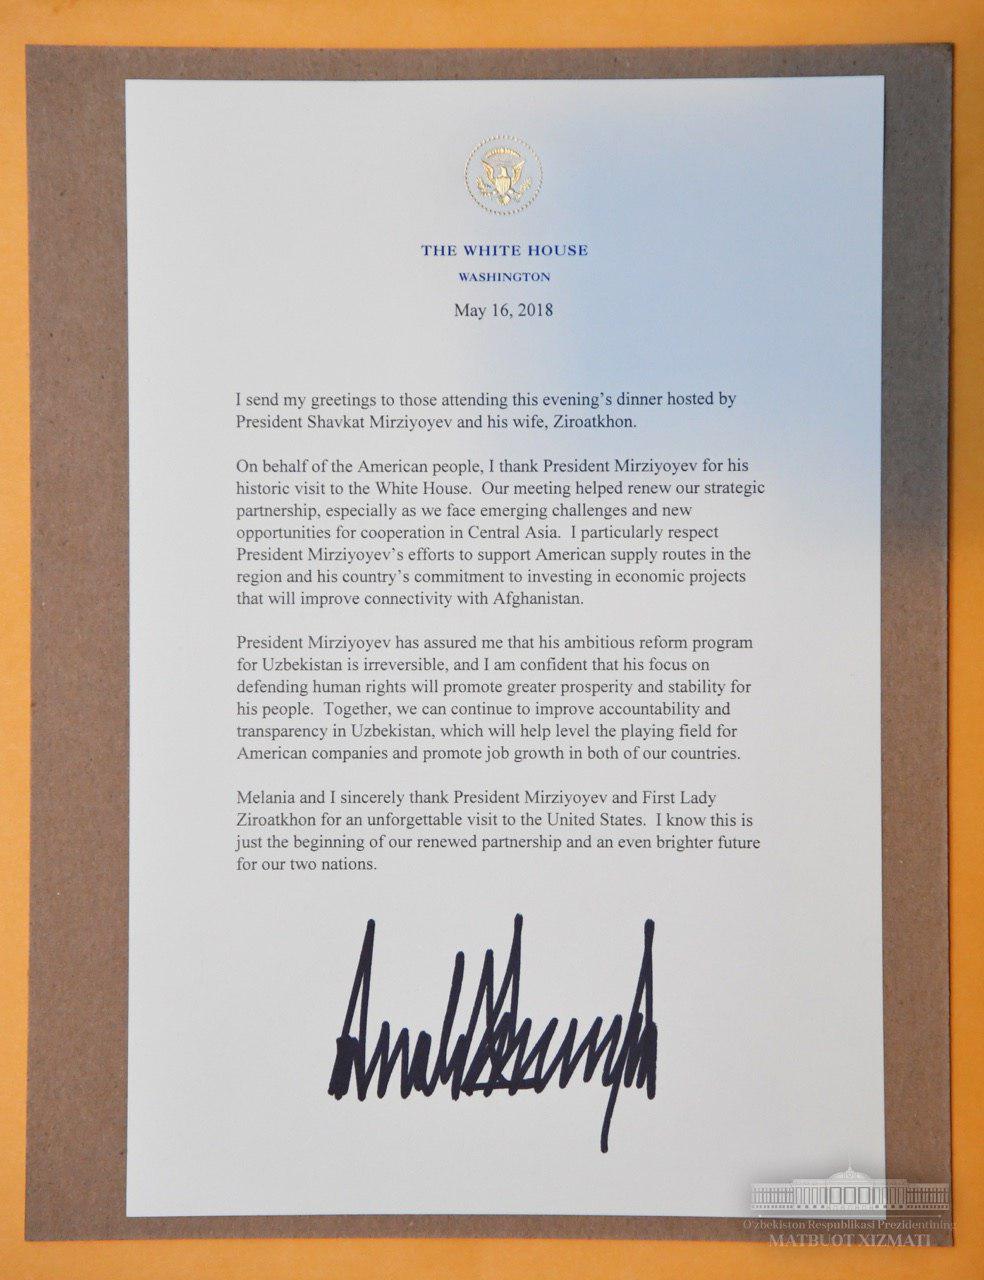 THE WHITE HOUSE
WASHINGTON
May 16, 2018
I send my greetings to those attending this evening's dinner hosted by
President Shavkat Mirziyoyev and his wife, Ziroatkhon.
On behalf of the American people, I thank President Mirziyoyev for his
historic visit to the White House.  Our meeting helped renew our strategic
partnership, especially as we face emerging challenges and new
opportunities for cooperation in Central Asia.  I particularly respect
President Mirziyoyev's efforts to support American supply routes in the
region and his country's commitment to investing in economic projects
that will improve connectivity with Afghanistan.
President Mirziyoyev has assured me that his ambitious reform program
for Uzbekistan is irreversible, and I am confident that his focus on
defending human rights will promote greater prosperity and stability for
his people.  Together, we can continue to improve accountability and
transparency in Uzbekistan, which will help level the playing field for
American companies and promote job growth in both of our countries.
Melania and I sincerely thank President Mirziyoyev and First Lady
Ziroatkhon for an unforgettable visit to the United States.  I know this is
just the beginning of our renewed partnership and an even brighter future
for our two nations.
O'zbekiston Respublikasi Prezidentining
MATBUOT XIZMATI